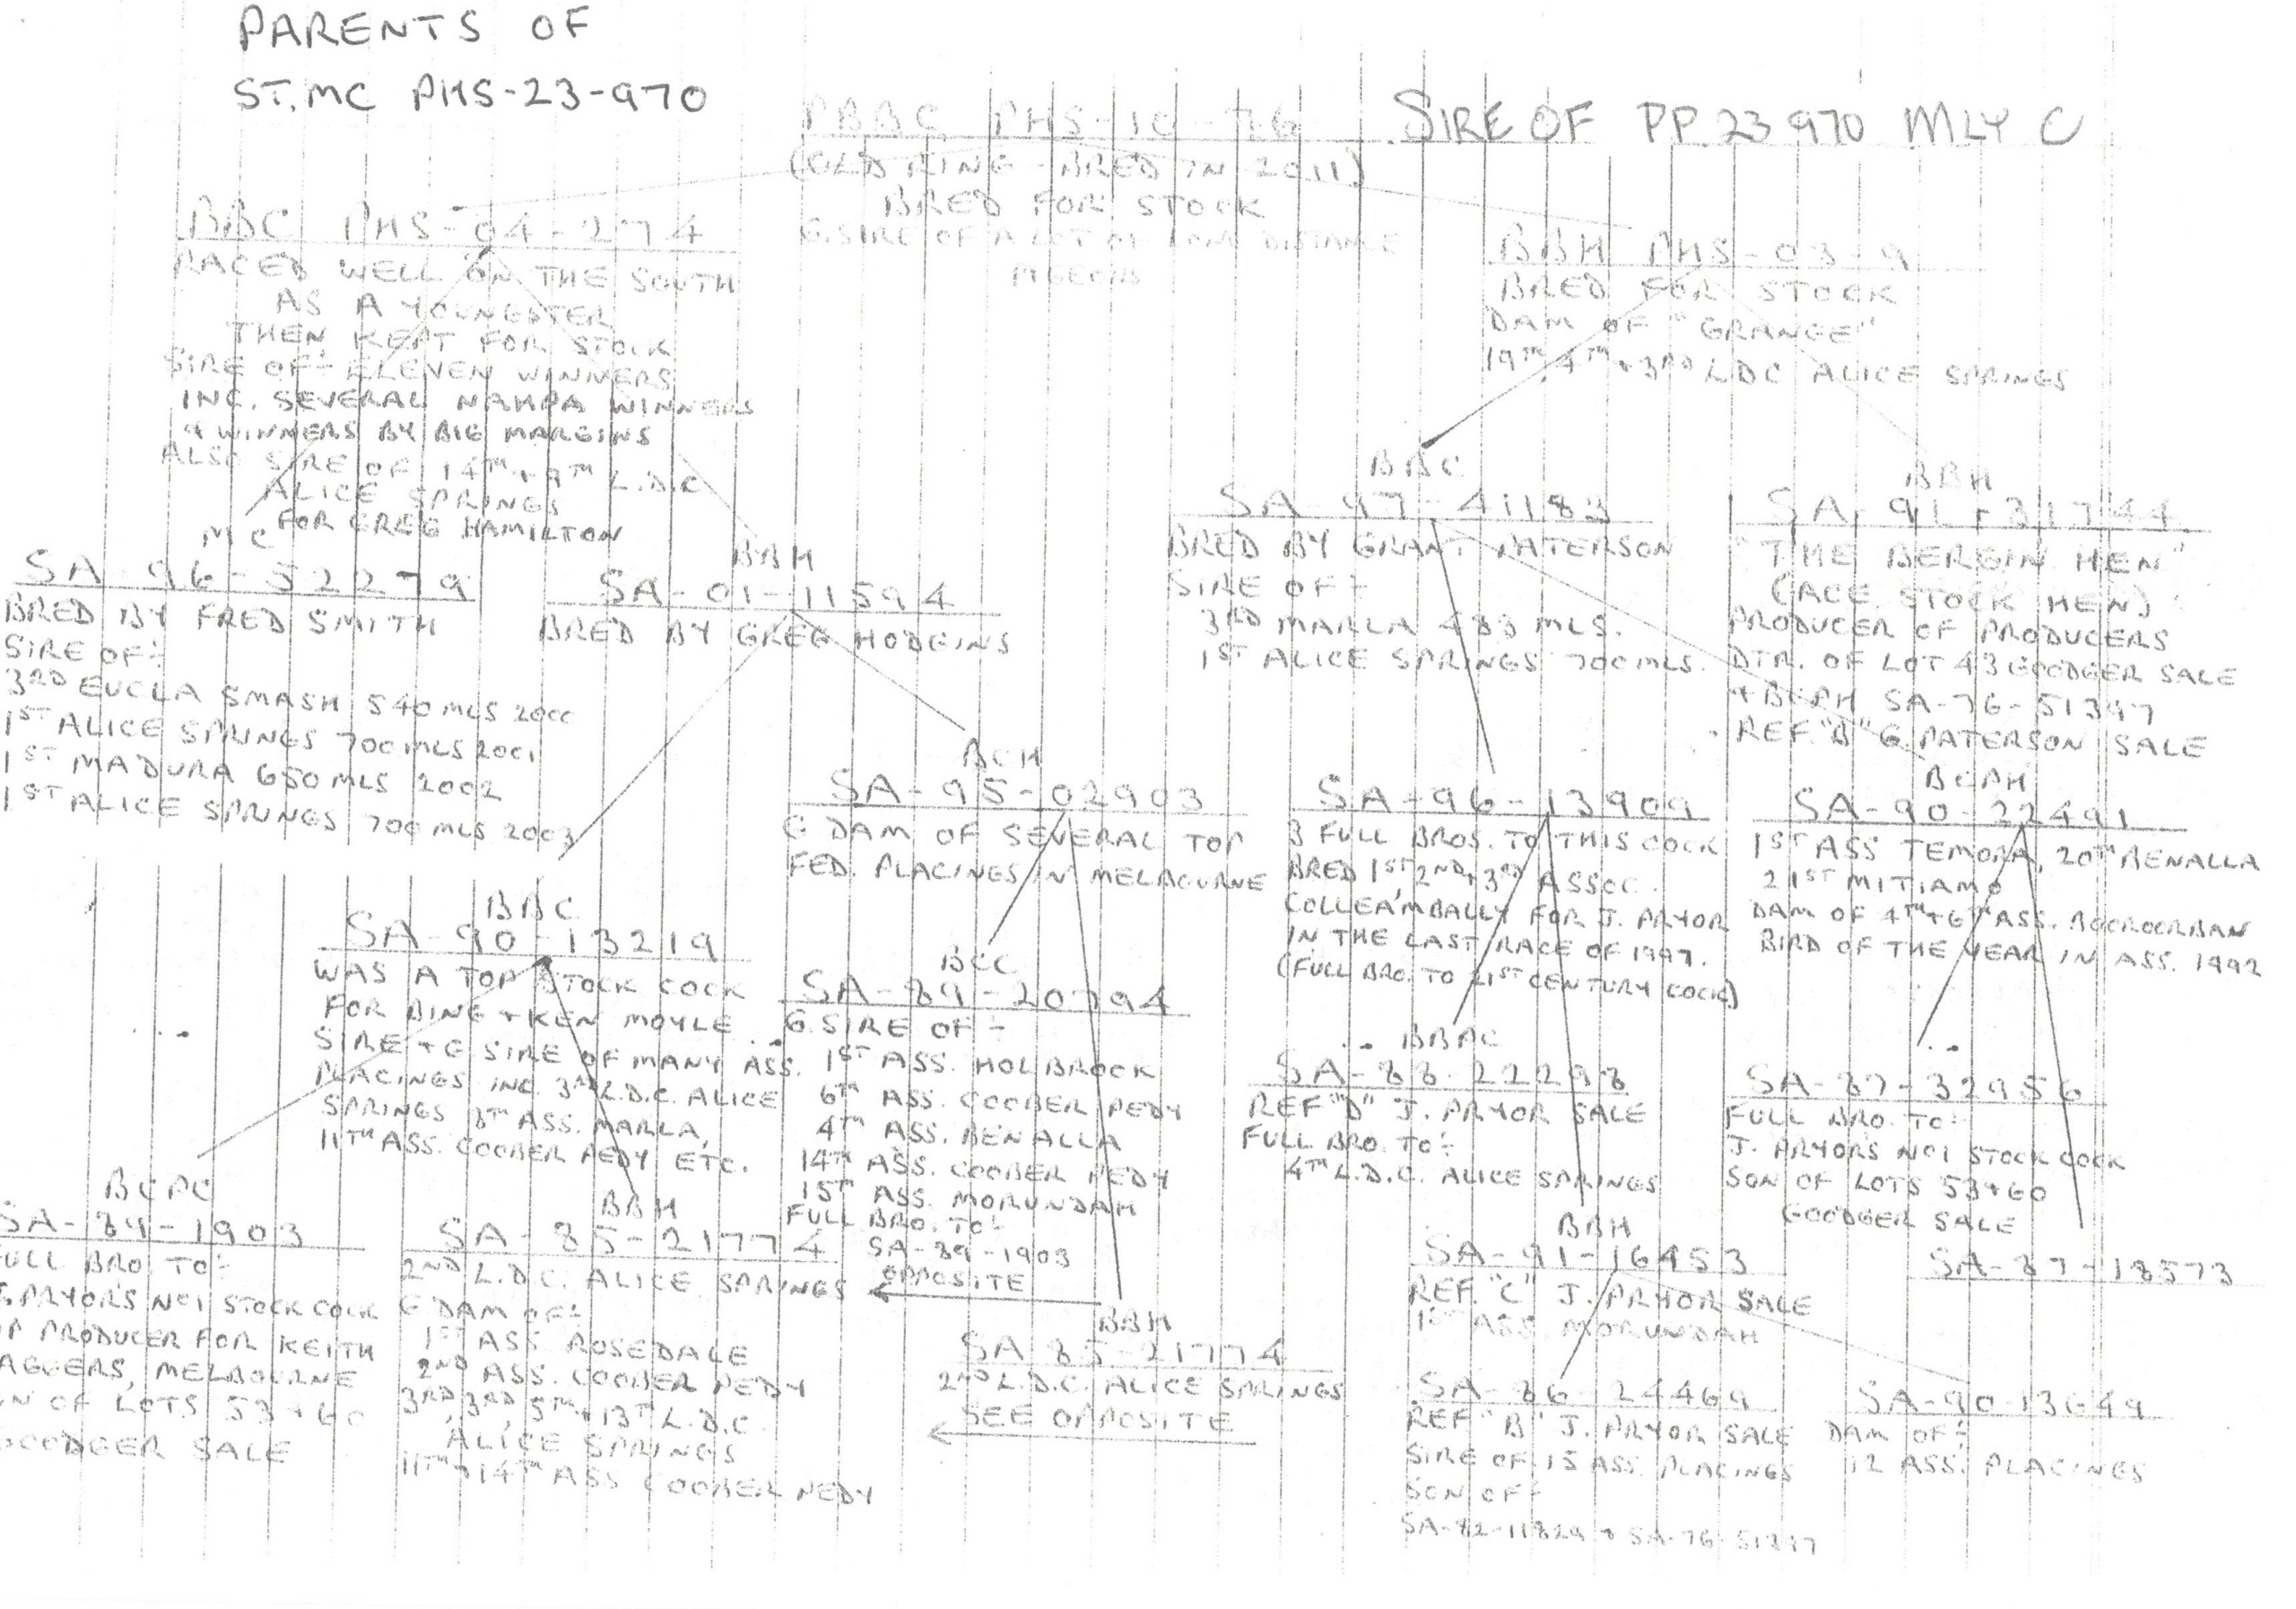 PARENTS OF
ST.MC PHS-23-970
SIRE OF PP.23 970 MLY C
PBBC PHS-10-76
(OLD RING - BRED IN 2011)
BRED FOR STOCK
G.SIRE OF A LOT OF LONG DISTANCE
PIGEONS
BBC PHS-04-274
RACED WELL ON THE SOUTH
AS A YOUNGSTER
THEN KEPT FOR STOCK
SIRE OF:- ELEVEN WINNERS
INC. SEVERAL NAHPA WINNERS
WINNERS BY BIG MARGINS
ALSO SIRE OF 14TH + 9TH L.D.C
ALICE SPRINGS
FOR GREG HAMILTON
BBH PHS-03-9
BRED FOR STOCK
DAM OF "GRANGE"
19TH, 4TH + 3RD LDC ALICE SPRINGS
MC
SA-96-52279
BRED BY FRED SMITH
SIRE OF:-
3RD EUCLA SMASH 540 MLS 2000
1ST ALICE SPRINGS 700 MLS 2001
1ST MADURA 650 MLS 2002
1ST ALICE SPRINGS 700 MLS 2003
BBH
SA-01-11594
BRED BY GREG HODGINS
BBC
SA-97-41183
BRED BY GRANT PATERSON
SIRE OF:-
3RD MARLA 483 MLS.
1ST ALICE SPRINGS 700 MLS.
BBH
SA-91-31744
"THE BERGIN HEN"
(ACE STOCK HEN)
PRODUCER OF PRODUCERS
DTR. OF LOT 43 GOODGER SALE
+ BCPH SA-76-51397
REF. "B" G. PATERSON SALE
BBC
SA-90-13219
WAS A TOP STOCK COCK
FOR BING + KEN MOYLE
SIRE + G SIRE OF MANY ASS.
PLACINGS INC. 3RD L.D.C. ALICE
SPRINGS 8TH ASS. MARLA,
11TH ASS. COOBER PEDY ETC.
BCH
SA-95-02903
G DAM OF SEVERAL TOP
FED. PLACINGS IN MELBOURNE
SA-96-13909
3 FULL BROS. TO THIS COCK
BRED 1ST, 2ND + 3RD ASSOC.
COLLEAMBALLY FOR J. PRYOR
IN THE LAST RACE OF 1997.
(FULL BRO. TO 21ST CENTURY COCK)
BCPH
SA-90-22491
1ST ASS TEMORA, 20TH BENALLA
21ST MITIAMO
DAM OF 4TH + 6TH ASS. BOOROORBAN
BIRD OF THE YEAR IN ASS. 1992
BCPC
SA-89-1903
FULL BRO. TO:-
J. PRYOR'S NO1 STOCK COCK
PRODUCER FOR KEITH
AGGERS, MELBOURNE
OF LOTS 53 + 60
GOODGER SALE
BBH
SA-85-21774
2ND L.D.C. ALICE SPRINGS
G DAM OF:-
1ST ASS. ROSEDALE
2ND ASS. COOBER PEDY
3RD, 3RD, 5TH + 13TH L.D.C.
ALICE SPRINGS
11TH + 14TH ASS COOBER PEDY
BCC
SA-89-20794
G. SIRE OF:-
1ST ASS. HOLBROCK
6TH ASS. COOBER PEDY
4TH ASS. BENALLA
14TH ASS. COOBER PEDY
15TH ASS. MORUNDAH
FULL BRO. TO:-
SA-89-1903
OPPOSITE
BBH
SA 85-21774
2ND L.D.C. ALICE SPRINGS
SEE OPPOSITE
BBPC
SA-88-22298
REF "D" J. PRYOR SALE
FULL BRO. TO:-
4TH L.D.C. ALICE SPRINGS
SA-87-32956
FULL BRO. TO:-
J. PRYORS NO1 STOCK COCK
SON OF LOTS 53 + 60
GOODGER SALE
BBH
SA-91-16453
REF. "C" J. PRYOR SALE
1ST ASS. MORUNDAH
SA-87-18573
SA-86-24469
REF "B" J. PRYOR SALE
SIRE OF 15 ASS. PLACINGS
SON OF:-
SA-82-11829 + SA-76-51397
SA-90-13649
DAM OF:-
12 ASS. PLACINGS